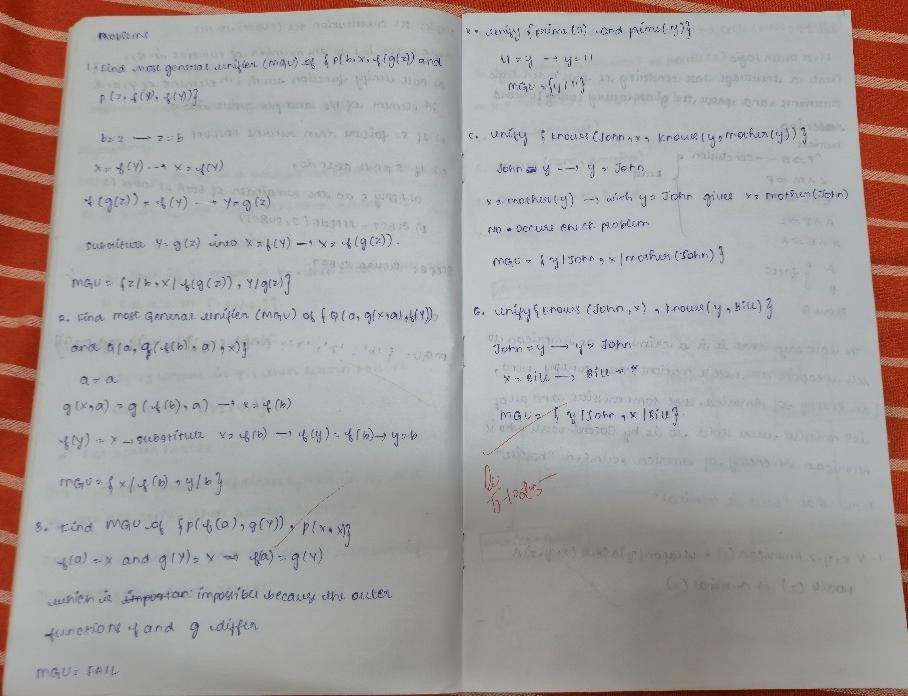 Problems
1. Find most general unifier (MGU) of {P(b,x,f(g(z))) and
P(z, f(Y), f(Y))}
b=z → z=b
x = f(Y) → x = f(Y)
f(g(z)) = f(Y) → Y = g(z)
substitute Y = g(z) into x = f(Y) → x = f(g(z)).
MGU = {z/b, x/f(g(z)), Y/g(z)}
2. Find most General unifier (MGU) of {Q(a, g(x,a), f(Y)),
and Q(a, g(f(b), a), x)}
a = a
g(x,a) = g(f(b), a) → x = f(b)
f(y) = x → substitute x = f(b) → f(y) = f(b) → y = b
MGU = {x/f(b), y/b}
3. Find MGU of {P(f(a), g(Y)), P(x,x)}
f(a) = x and g(Y) = x → f(a) = g(Y)
which is impossibel because the outer
functions f and g differ
MGU = FAIL
unify {prime(11) and prime(y)}
11 = y → y = 11
MGU = {y/11}
unify {knows(John, x, knows(y, mother(y))}
John = y → y = John
x = mother(y) → with y = John gives x = mother(John)
NO occurs check problem
MGU = {y/John, x/mother(John)}
6. unify {knows (John, x), knows(y, Bill)}
John = y → y = John
x = Bill → Bill = x
MGU = {y/John, x/Bill}